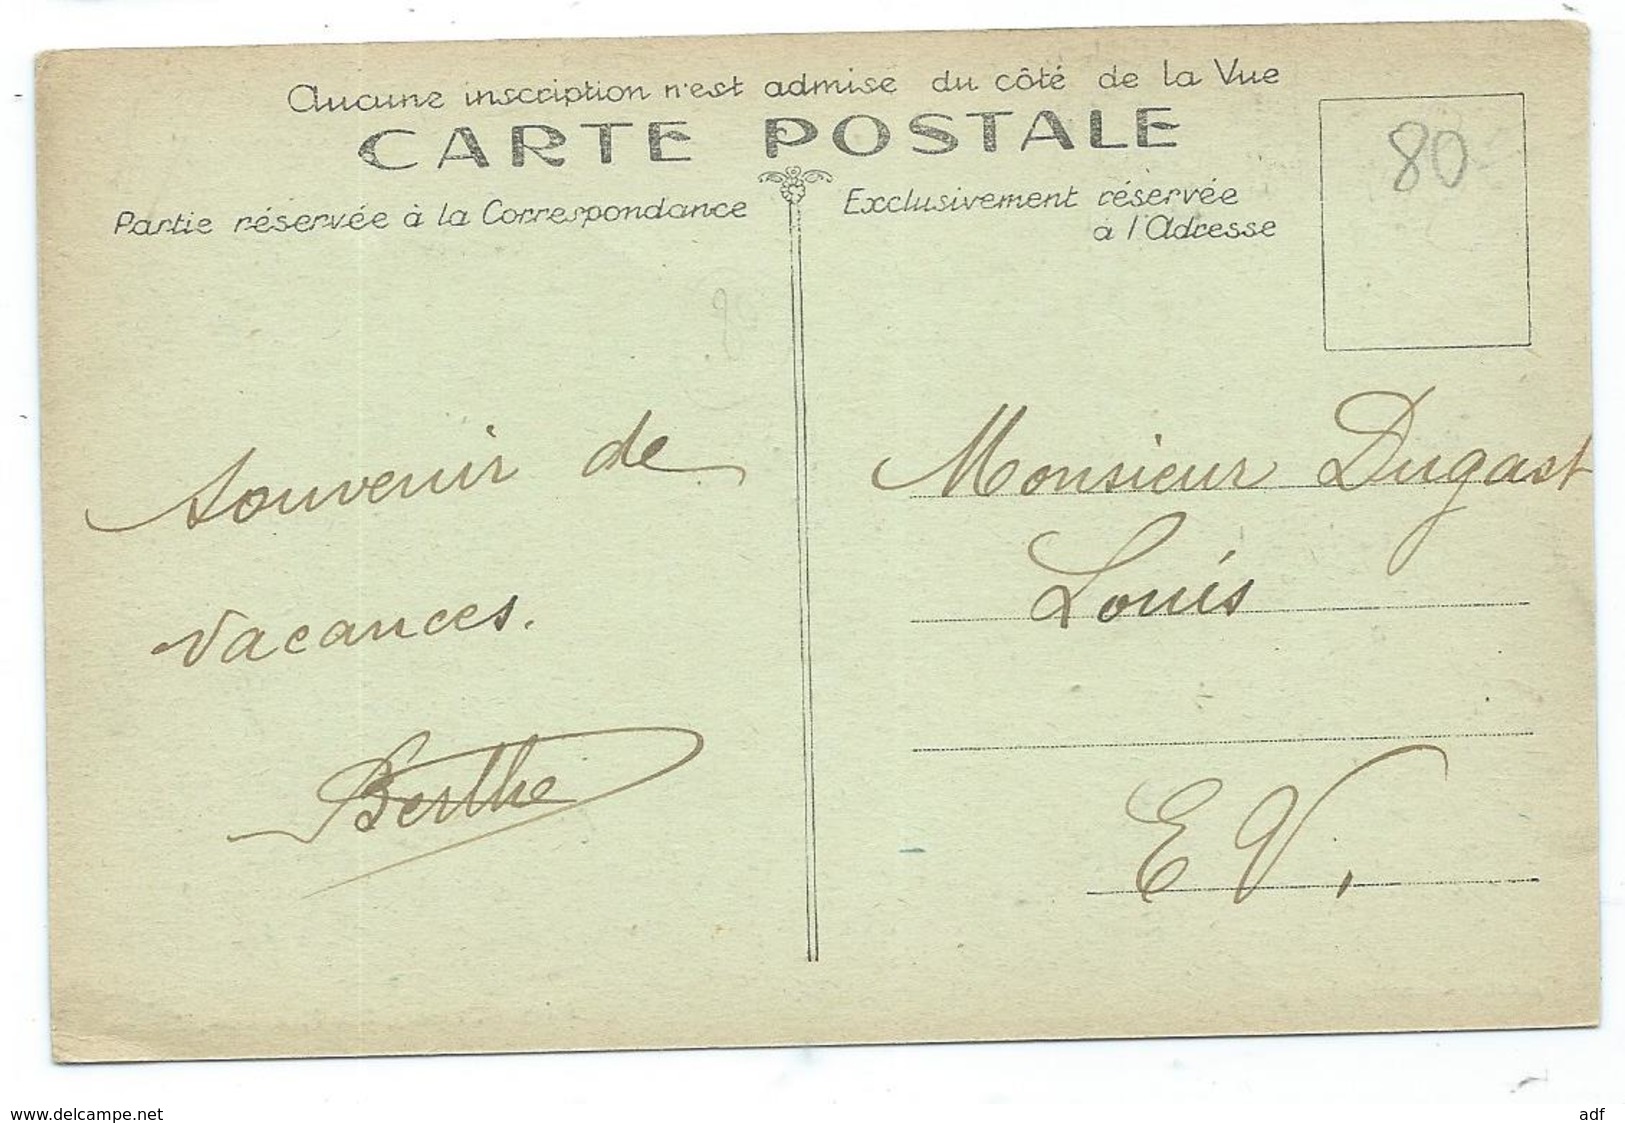 Aucune inscription n'est admise du côté de la Vue
CARTE POSTALE
Partie réservée à la Correspondance
Exclusivement réservée
à l'Adresse
80
Souvenir de
Vacances.
Berthe
Monsieur Dugast
Louis
E V.
www.delcampe.net
adf